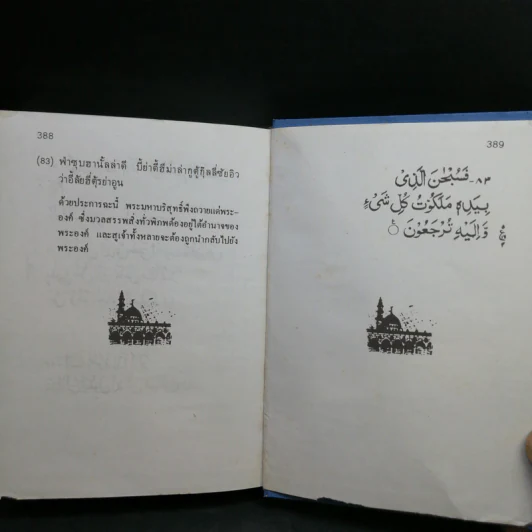 388
(83) ฟาซุบฮานั้ลล่าดี บี้ย่าดี้ฮีม่าล่ากูตู้กุ้ลลี่ชัยอิว
ว่าอี้ลัยฮี่ตุ้รย่าอูน
ด้วยประการฉะนี้ พระมหาบริสุทธิ์พึงถวายแด่พระ-
องค์ ซึ่งมวลสรรพสิ่งทั่วพิภพต้องอยู่ใต้อำนาจของ
พระองค์ และสูเจ้าทั้งหลายจะต้องถูกนำกลับไปยัง
พระองค์
389
٨٣- فَسُبْحٰنَ الَّذِى
بِيَدِهٖ مَلَكُوْتُ كُلِّ شَىْءٍ
وَّاِلَيْهِ تُرْجَعُوْنَ